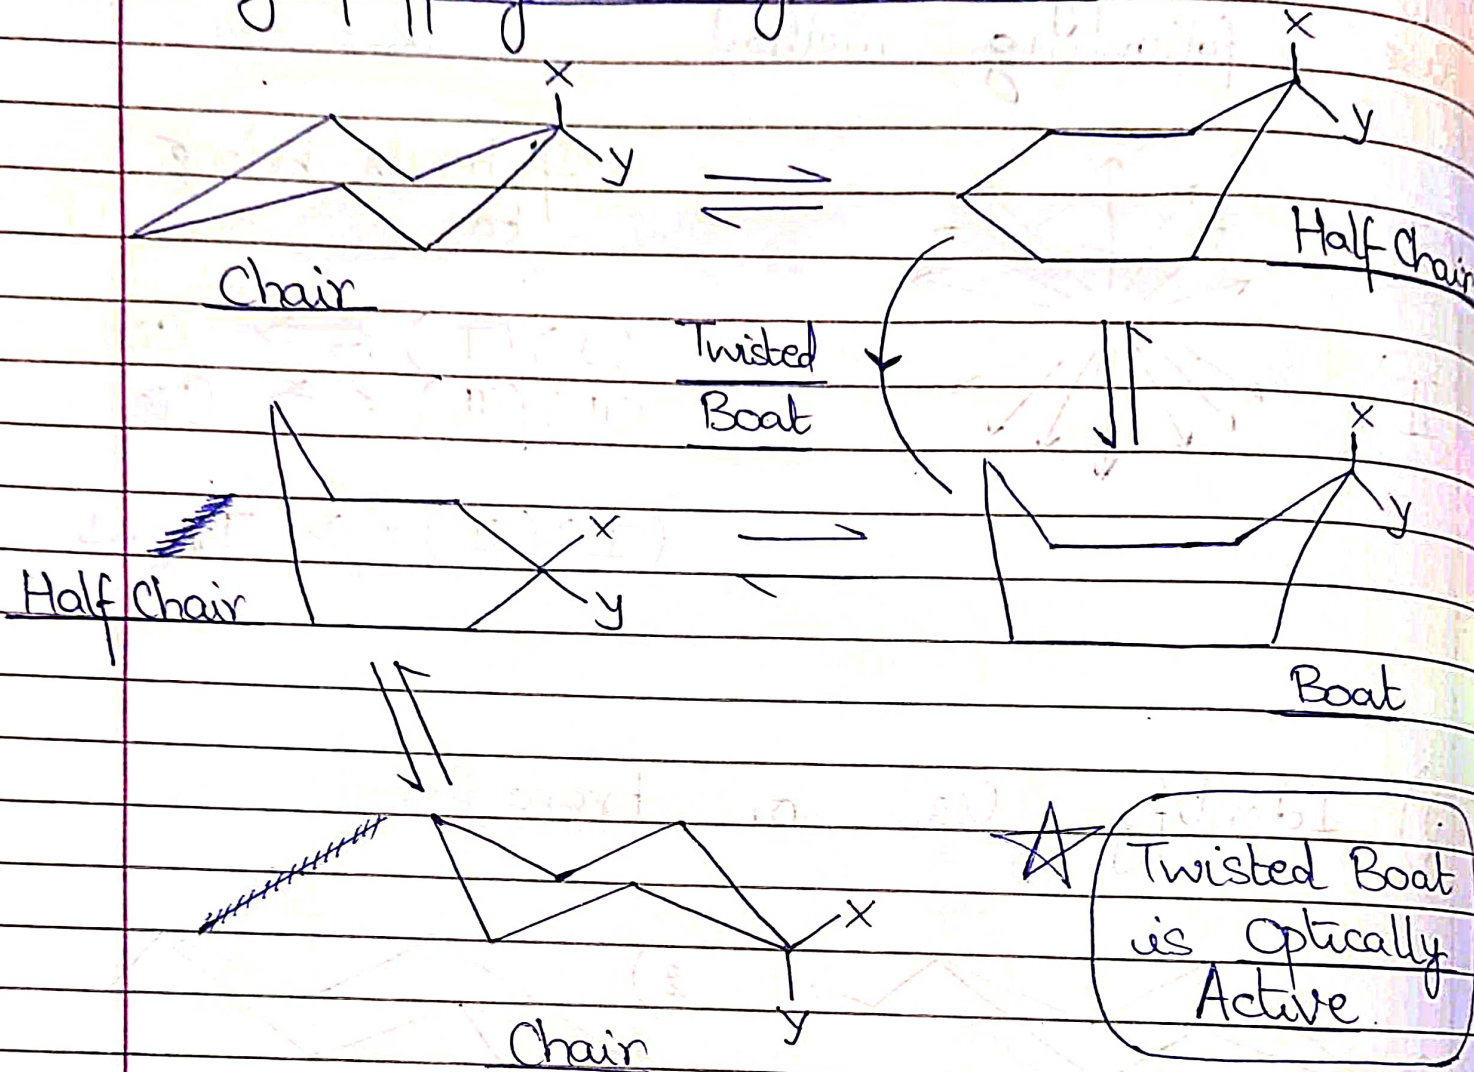 X
y
X
y
Chair
Half Chair
Twisted
Boat
X
y
X
y
Half Chair
Boat
X
y
Chair
Twisted Boat
is Optically
Active.